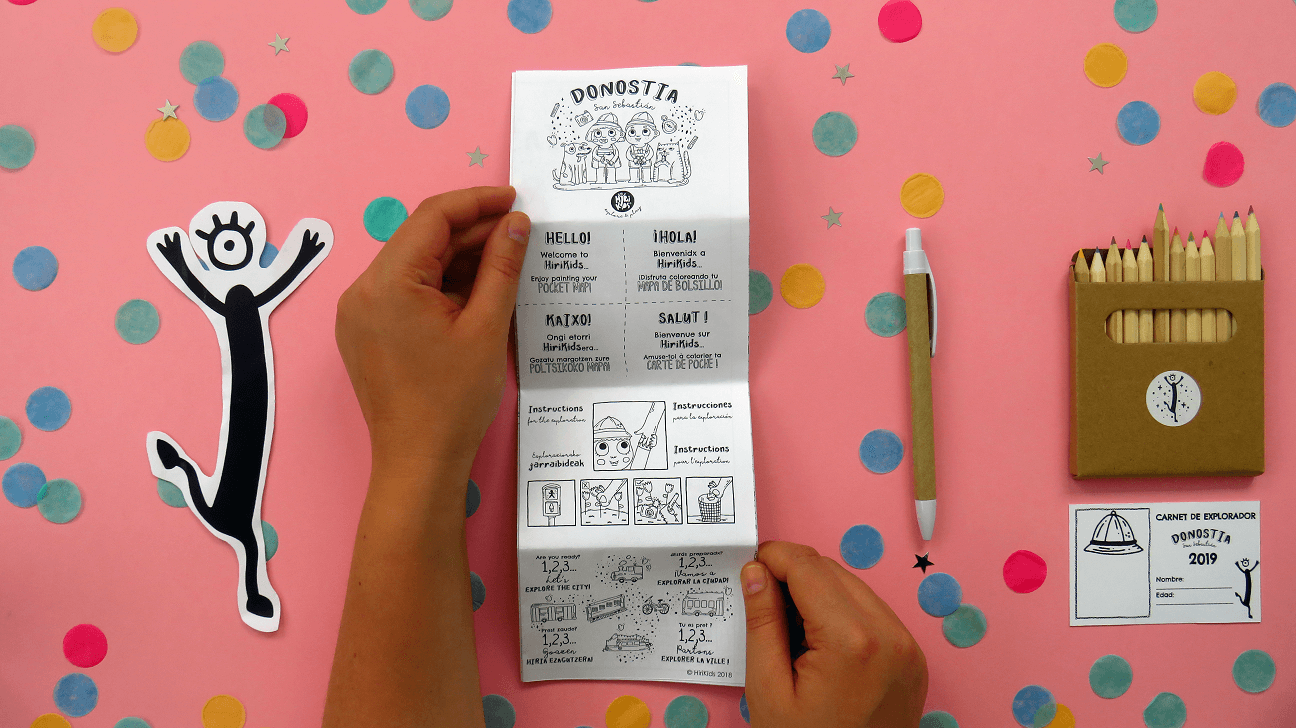 DONOSTIA
San Sebastián
HIRI
KIDS
explore & play
HELLO!
Welcome to
HiriKids...
Enjoy painting your
POCKET MAP!
¡HOLA!
Bienvenidx a
HiriKids...
¡Disfruta coloreando tu
MAPA DE BOLSILLO!
KAIXO!
Ongi etorri
HiriKidsera...
Gozatu margotzen zure
POLTSIKOKO MAPA!
SALUT !
Bienvenue sur
HiriKids...
Amuse-toi à colorier ta
CARTE DE POCHE !
Instructions
for the exploration
Instrucciones
para la exploración
Esploraziorako
jarraibideak
Instructions
pour l'exploration
Are you ready?
1,2,3...
Let's
EXPLORE THE CITY!
¿Estás preparadx?
1,2,3...
¡Vamos a
EXPLORAR LA CIUDAD!
Prest zaude?
1,2,3...
Goazen
HIRIA EZAGUTZERA!
Tu es prêt ?
1,2,3...
Partons
EXPLORER LA VILLE !
© HiriKids 2018
CARNET DE EXPLORADOR
DONOSTIA
San Sebastián
2019
Nombre:
Edad: